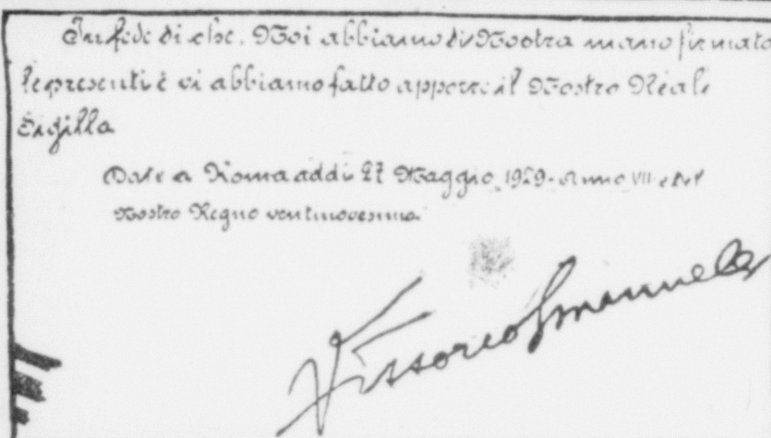 In fede di che. Noi abbiamo di Nostra mano firmato
le presenti e vi abbiamo fatto apporre il Nostro Reale
Sigillo
Date a Roma addi 27 Maggio 1929 - Anno VII e del
Nostro Regno ventinovesimo
Vittorio Emanuele